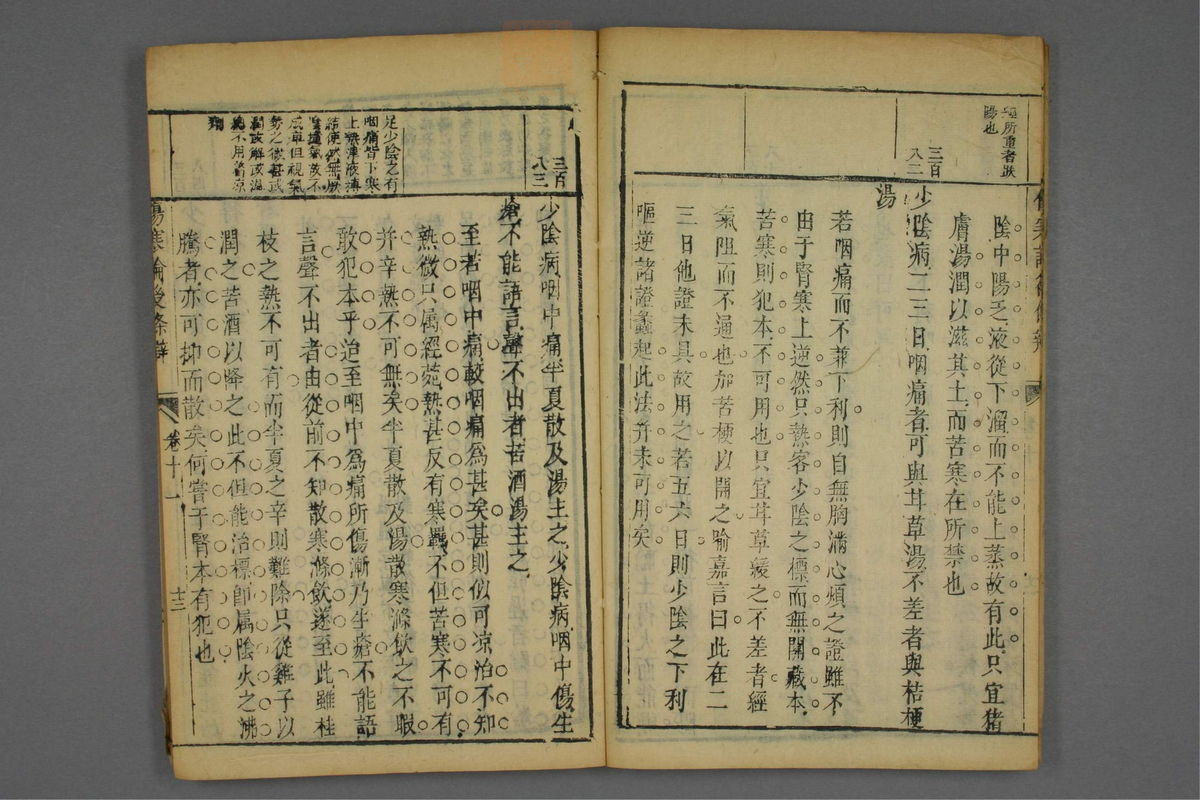 所重者
陽也
三百
八二
陰中陽乏液從下溜而不能上蒸故有此只宜猪
膚湯潤以滋其土而苦寒在所禁也
少陰病二三日咽痛者可與甘草湯不差者與桔梗
湯
若咽痛而不兼下利則自無胸滿心煩之證雖不
由于腎寒上逆然只熱客少陰之標而無關藏本
苦寒則犯本不可用也只宜甘草緩之不差者經
氣阻而不通也加苦梗以開之喻嘉言曰此在二
三日他證未具故用之若五六日則少陰之下利
嘔逆諸證蠭起此法并未可用矣
三百
八三
足少陰之有
咽痛皆下寒
上熱津液
結使然無厥
陰氣故不
成痺但視氣
勢之微甚或
潤或解或温
總不用着凉
劑
少陰病咽中痛半夏散及湯主之少陰病咽中傷生
瘡不能語言聲不出者苦酒湯主之
至若咽中痛較咽痛爲甚矣甚則似可凉治不知
熱微只属經菀熱甚反有寒羈不但苦寒不可有
并辛熱不可無矣半夏散及湯散寒滌飲之不暇
敢犯本乎迨至咽中爲痛所傷漸乃生瘡不能語
言聲不出者由從前不知散寒滌飲遂至此雖桂
枝之熱不可有而半夏之辛則難除只從雞子以
潤之苦酒以降之此不但能治標即属陰火之沸
騰者亦可抑而散矣何嘗于腎本有犯也
傷寒論後條辯
卷十一
十三